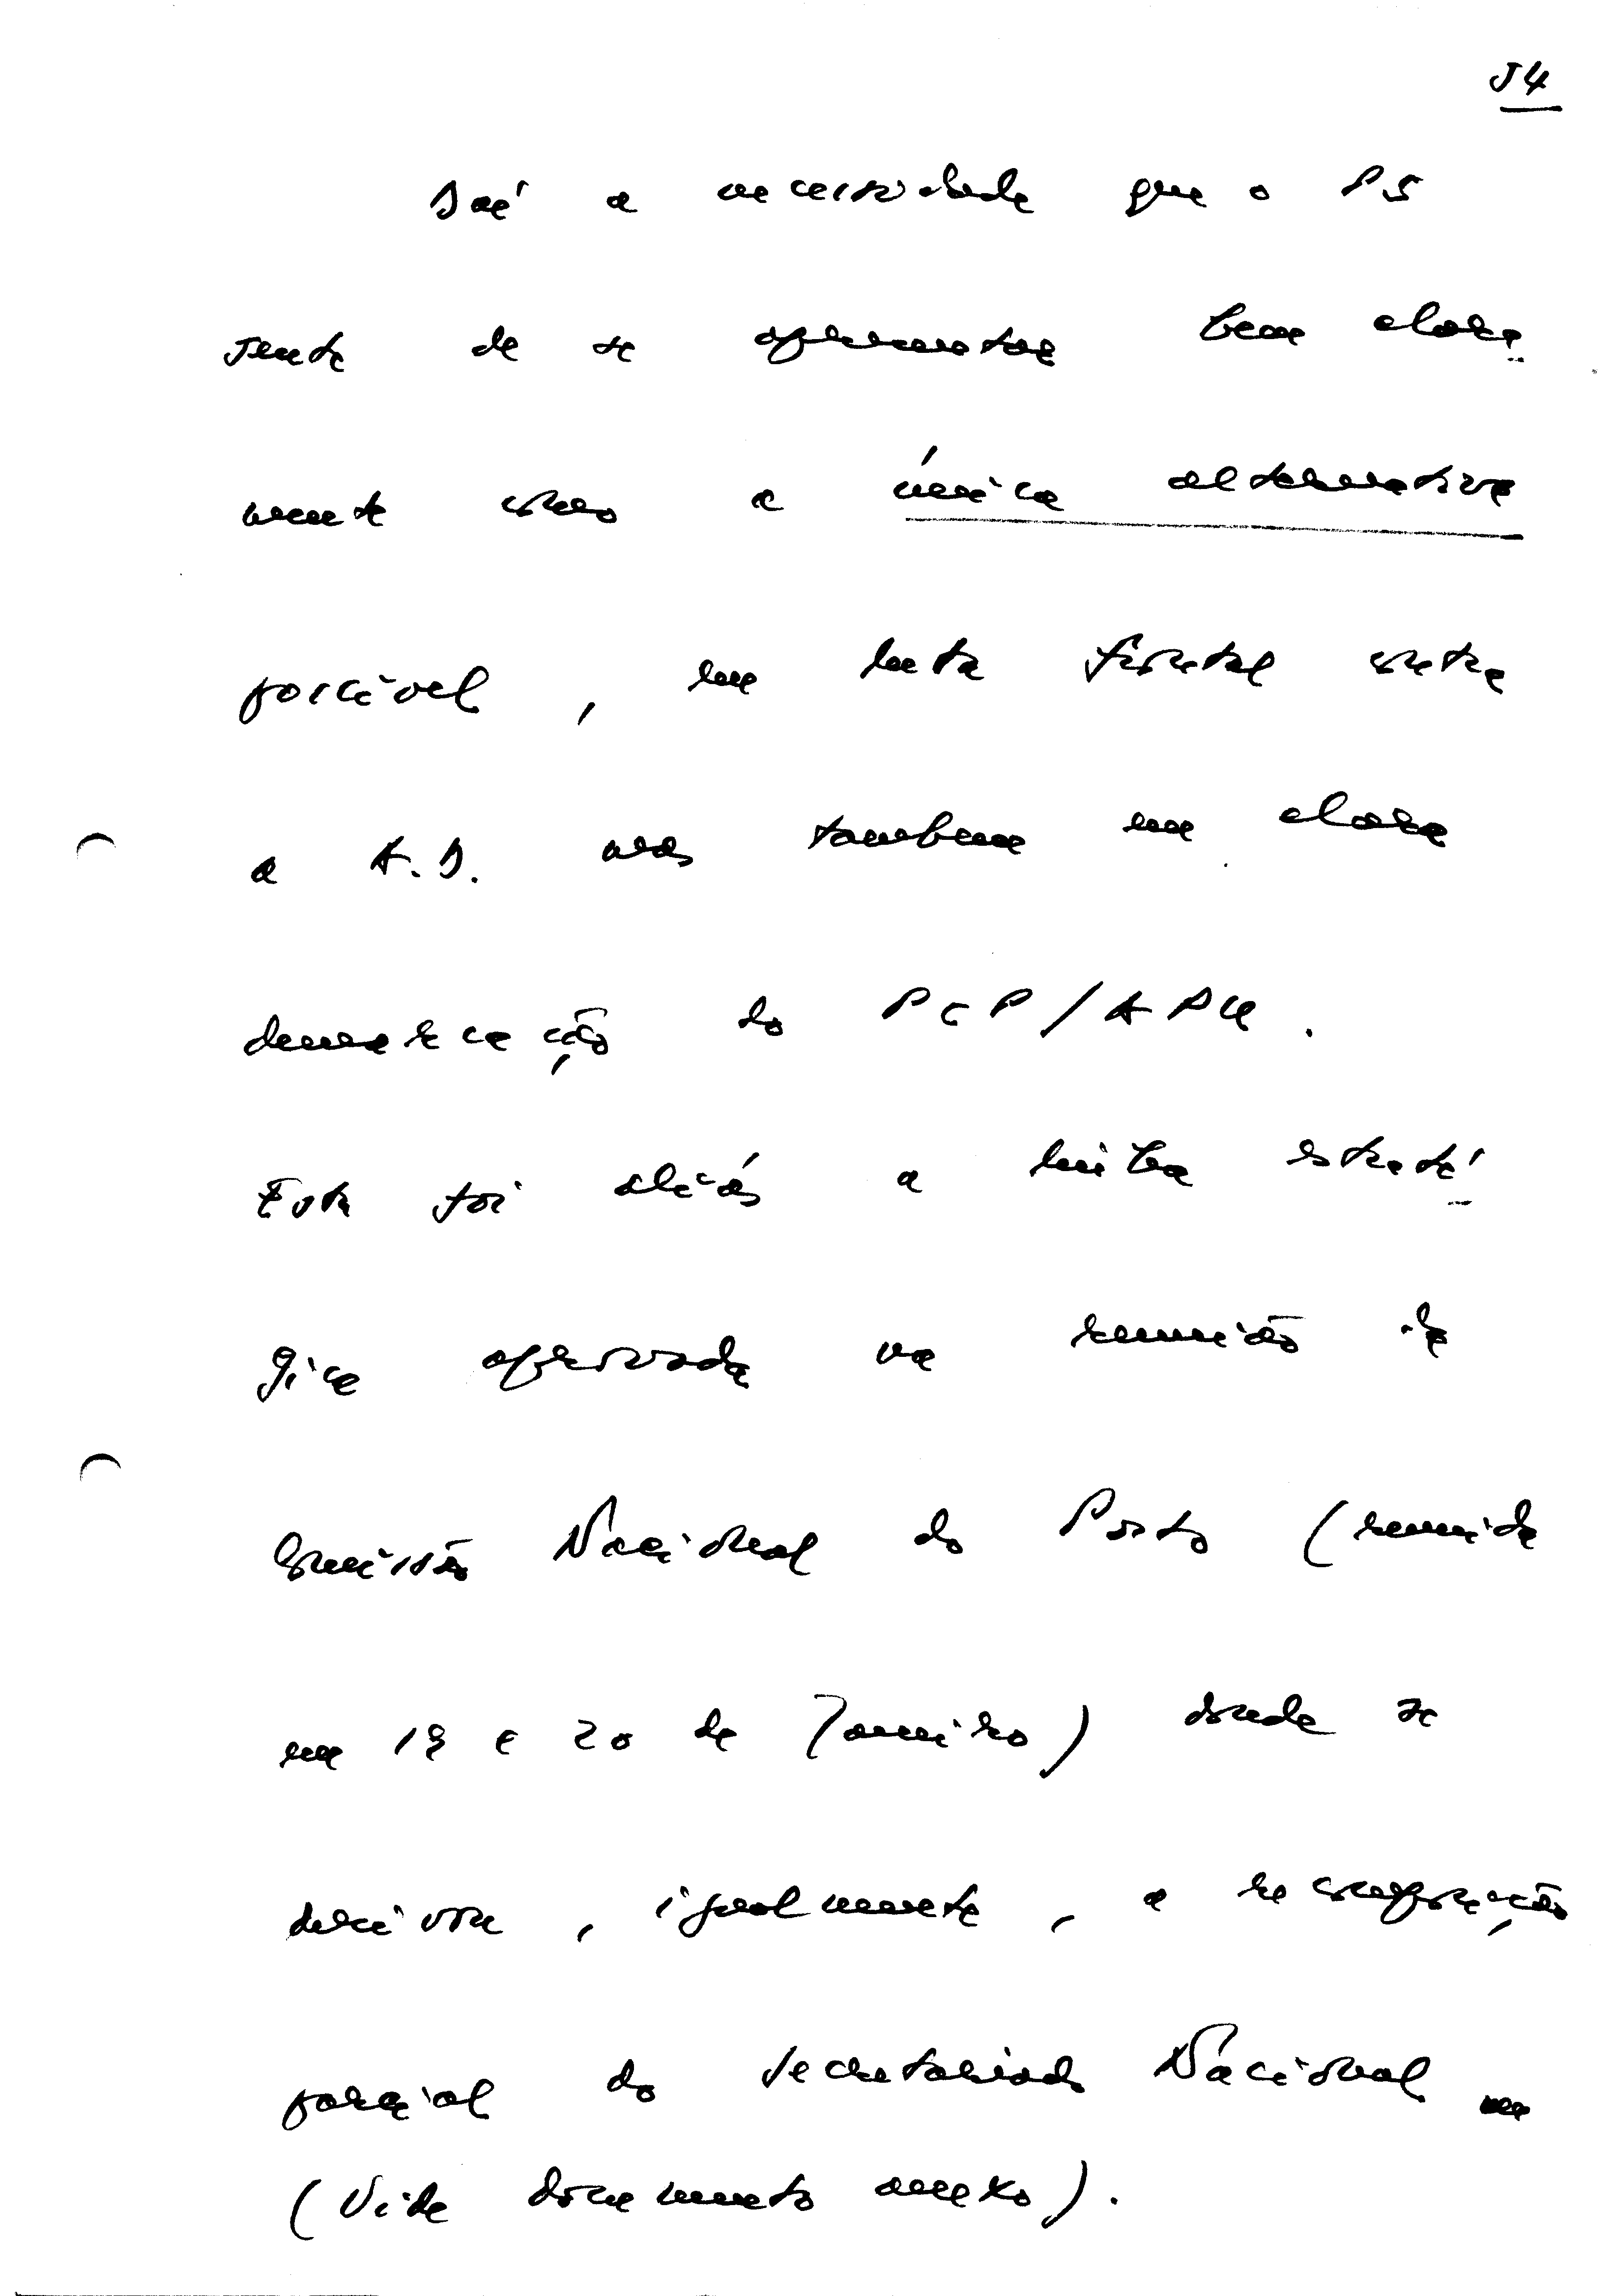 54
Daí a necessidade que o PS
sente de se apresentar bem clara
mente como a única alternativa
possível, em luta frontal contra
a A.D. mas tambem em clara
demarcação do PCP/APU.
Esta foi aliás a linha estraté
gica aprovada na reunião da
Comissão Nacional do Porto (reunida
em 19 e 20 de Janeiro) donde se
decidiu, igualmente, a
parcial do Secretariado Nacional
(Vide documento anexo).